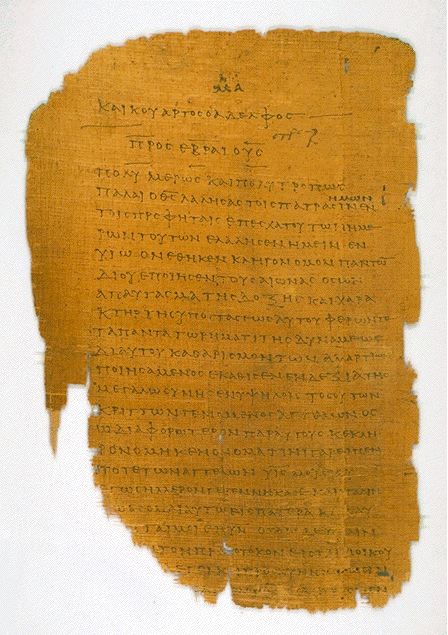 ΚΑΙ ΚΟΥΑΡΤΟΣ Ο ΑΔΕΛΦΟΣ
ΠΡΟΣ ΕΒΡΑΙΟΥΣ
ΠΟΛΥΜΕΡΩΣ ΚΑΙ ΠΟΛΥΤΡΟΠΩΣ
ΗΜΩΝ
ΠΑΛΑΙ Ο ΘΣ ΛΑΛΗΣΑΣ ΤΟΙΣ ΠΑΤΡΑΣΙΝ ΕΝ
ΤΟΙΣ ΠΡΟΦΗΤΑΙΣ ΕΠ ΕΣΧΑΤΟΥ ΤΩΝ ΗΜΕ
ΡΩΝ ΤΟΥΤΩΝ ΕΛΑΛΗΣΕΝ ΗΜΕΙΝ ΕΝ
ΥΙΩ ΟΝ ΕΘΗΚΕΝ ΚΛΗΡΟΝΟΜΟΝ ΠΑΝΤΩ̅
ΔΙ ΟΥ ΕΠΟΙΗΣΕΝ ΤΟΥΣ ΑΙΩΝΑΣ ΟΣ ΩΝ
ΑΠΑΥΓΑΣΜΑ ΤΗΣ ΔΟΞΗΣ ΚΑΙ ΧΑΡΑ
ΚΤΗΡ ΤΗΣ ΥΠΟΣΤΑΣΕΩΣ ΑΥΤΟΥ ΦΕΡΩΝ ΤΕ
ΤΑ ΠΑΝΤΑ ΤΩ ΡΗΜΑΤΙ ΤΗΣ ΔΥΝΑΜΕΩΣ
ΔΙ ΑΥΤΟΥ ΚΑΘΑΡΙΣΜΟΝ ΤΩΝ ΑΜΑΡΤΙΩ̅
ΠΟΙΗΣΑΜΕΝΟΣ ΕΚΑΘΙΣΕΝ ΕΝ ΔΕΞΙΑ ΤΗΣ
ΜΕΓΑΛΩΣΥΝΗΣ ΕΝ ΥΨΗΛΟΙΣ ΤΟΣΟΥΤΩ
ΚΡΙΤΤΩΝ ΓΕΝΟΜΕΝΟΣ ΑΓΓΕΛΩΝ ΟΣ
Ω ΔΙΑΦΟΡΩΤΕΡΟΝ ΠΑΡ ΑΥΤΟΥΣ ΚΕΚΛΗ
ΡΟΝΟΜΗΚΕΝ ΟΝΟΜΑ ΤΙΝΙ ΓΑΡ ΕΙΠΕΝ
ΠΟΤΕ ΤΩΝ ΑΓΓΕΛΩΝ ΥΙΟΣ
ΣΗΜΕΡΟΝ ΓΕΓΕΝΝΗΚΑ ΣΕ ΚΑΙ ΠΑΛΙΝ
ΕΣΟΜΑΙ ΑΥΤΩ ΕΙΣ ΠΑΤΕΡΑ ΚΑΙ ΑΥ
ΜΟΙ ΕΙΣ ΥΝ ΟΤΑΝ ΔΕ ΠΑΛΙΝ
ΤΟΝ ΠΡΩΤΟΤΟΚΟΝ ΕΙΣ ΤΗΝ ΟΙΚΟΥ